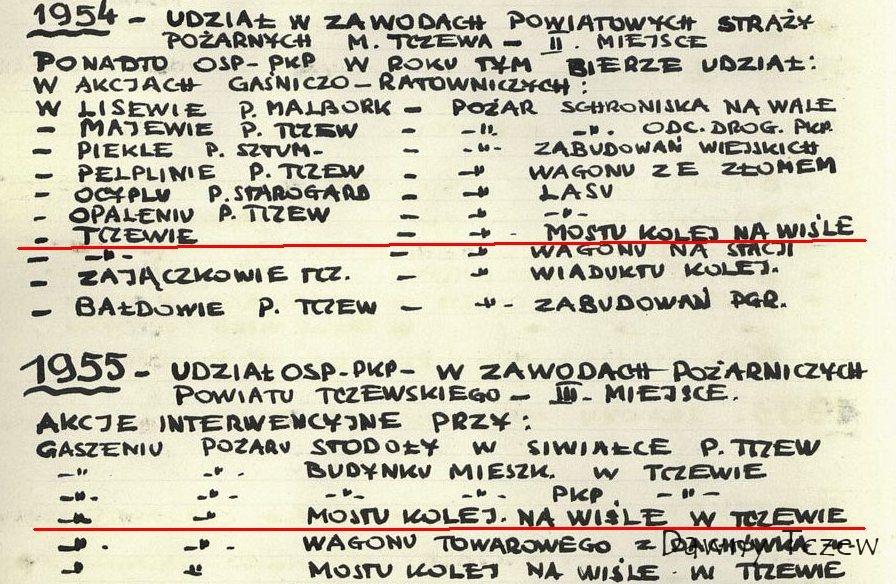 1954 - UDZIAŁ W ZAWODACH POWIATOWYCH STRAŻY
POŻARNYCH M. TCZEWA - II. MIEJSCE
PONADTO OSP-PKP W ROKU TYM BIERZE UDZIAŁ:
W AKCJACH GAŚNICZO-RATOWNICZYCH:
W LISEWIE P. MALBORK - POŻAR SCHRONISKA NA WALE
- MAJEWIE P. TCZEW - -"- -"- ODC. DROG. PKP.
- PIEKLE P. SZTUM- -"- ZABUDOWAŃ WIEJSKICH
- PELPLINIE P. TCZEW - -"- WAGONU ZE ZŁOMEM
- OCYPLU P. STAROGARD - -"- LASU
- OPALENIU P. TCZEW - -"- -"-
- TCZEWIE - -"- MOSTU KOLEJ NA WIŚLE
- -"- - -"- WAGONU NA STACJI
- ZAJĄCZKOWIE TCZ. - -"- WIADUKTU KOLEJ.
- BAŁDOWIE P. TCZEW - -"- ZABUDOWAŃ PGR.
1955 - UDZIAŁ OSP-PKP- W ZAWODACH POŻARNICZYCH
POWIATU TCZEWSKIEGO - III- MIEJSCE.
AKCJE INTERWENCYJNE PRZY:
GASZENIU POŻARU STODOŁY W SIWIAŁCE P. TCZEW
-"- -"- BUDYNKU MIESZK. W TCZEWIE
-"- -"- -"- PKP. -"-
-"- -"- MOSTU KOLEJ. NA WIŚLE W TCZEWIE
-"- -"- WAGONU TOWAROWEGO Z DACHÓWKĄ -"-
-"- -"- MOSTU KOLEJ NA WIŚLE W TCZEWIE
Dawny Tczew